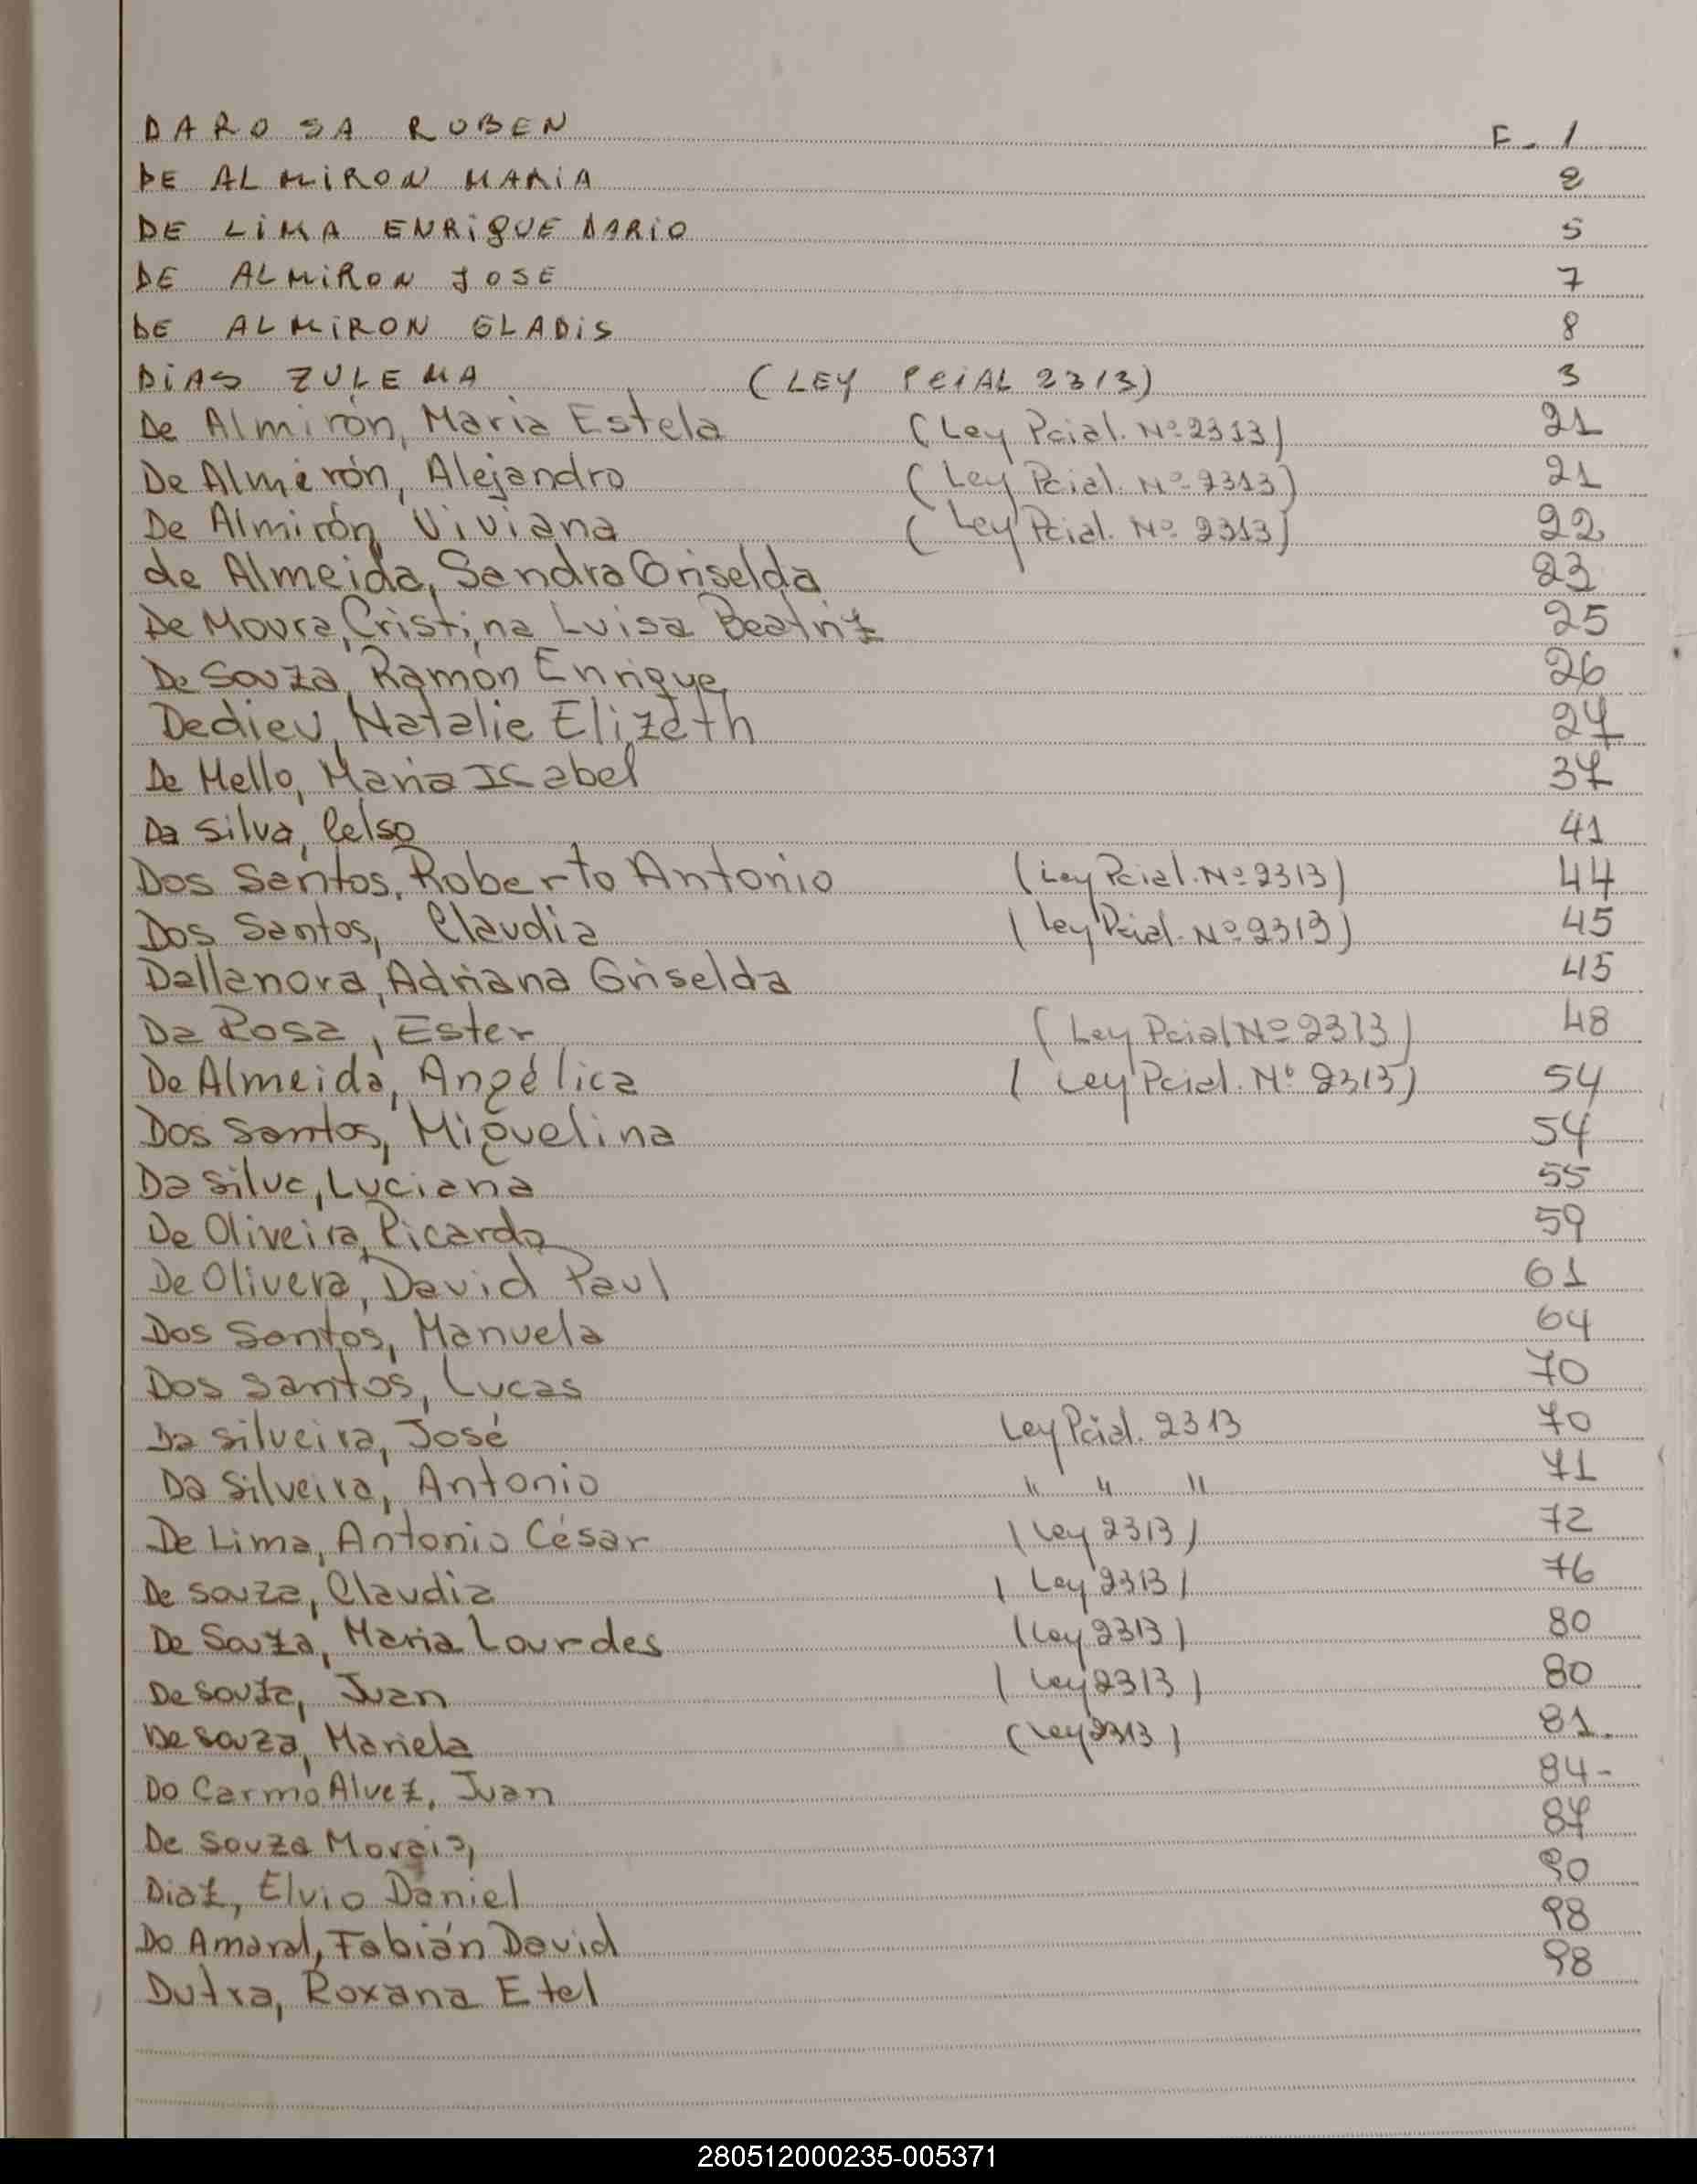 DAROSA RUBEN F. 1
DE ALMIRON MARIA 2
DE LIMA ENRIQUE DARIO 5
DE ALMIRON JOSE 7
DE ALMIRON GLADIS 8
DIAS ZULEMA (LEY PCIAL 2313) 3
De Almirón, Maria Estela (Ley Pcial. Nº 2313) 21
De Almirón, Alejandro (Ley Pcial. Nº 2313) 21
De Almirón Viviana (Ley Pcial. Nº 2313) 22
de Almeida, Sandra Griselda 23
De Moura, Cristina Luisa Beatriz 25
De Souza, Ramón Enrique 26
Dedieu, Natalie Elizeth 27
De Mello, Maria Isabel 37
Da Silva, Celso 41
Dos Santos, Roberto Antonio (Ley Pcial. Nº 2313) 44
Dos Santos, Claudia (Ley Pcial. Nº 2313) 45
Dallanora, Adriana Griselda 45
Da Rosa, Ester (Ley Pcial Nº 2313) 48
De Almeida, Angélica (Ley Pcial. Nº 2313) 54
Dos Santos, Miguelina 54
Da Silva, Luciana 55
De Oliveira, Ricardo 59
De Olivera, David Paul 61
Dos Santos, Manuela 64
Dos Santos, Lucas 70
Da Silveira, José Ley Pcial. 2313 70
Da Silveira, Antonio " " " 71
De Lima, Antonio César (Ley 2313) 72
De Souza, Claudia (Ley 2313) 76
De Souza, Maria Lourdes (Ley 2313) 80
De Souza, Juan (Ley 2313) 80
De Souza, Mariela (Ley 2313) 81.
Do Carmo Alvez, Juan 84-
De Souza Morais, 87
Diaz, Elvio Daniel 90
Do Amaral, Fabián David 98
Dutra, Roxana Etel 98
280512000235-005371